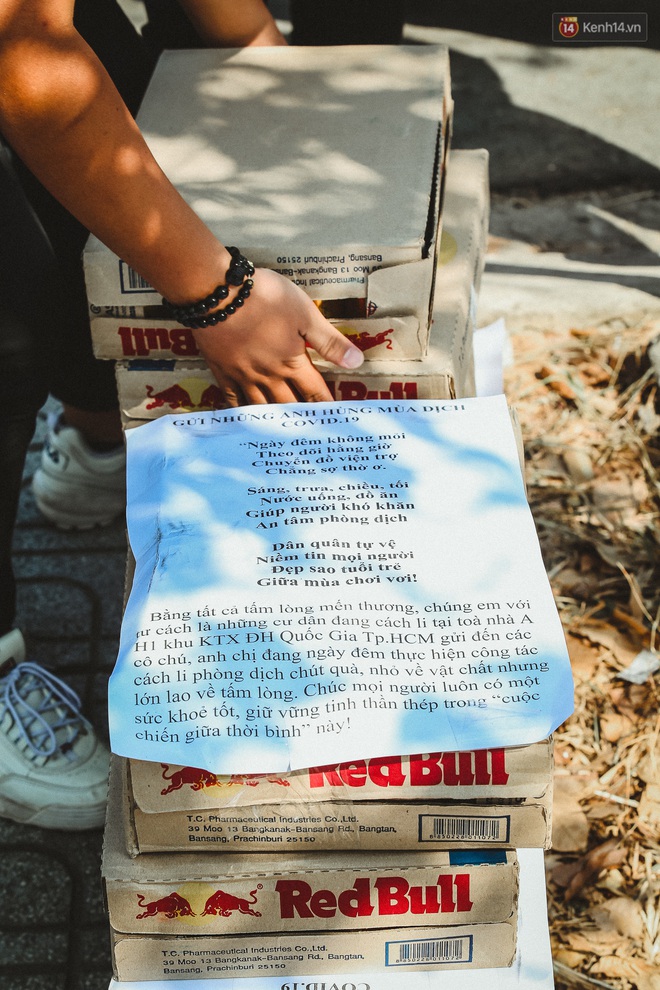 14 Kenh14.vn
Bansang, Prachinburi 25150
39 Moo 13 Bangkanak-Bansang
Pharmaceutical
RedBull
GỬI NHỮNG ANH HÙNG MÙA DỊCH
COVID.19
"Ngày đêm không mỏi
Theo dõi hằng giờ
Chuyển đồ viện trợ
Chẳng sợ thờ ơ.
Sáng, trưa, chiều, tối
Nước uống, đồ ăn
Giúp người khó khăn
An tâm phòng dịch
Dân quân tự vệ
Niềm tin mọi người
Đẹp sao tuổi trẻ
Giữa mùa chơi vơi!
Bằng tất cả tấm lòng mến thương, chúng em với
tư cách là những cư dân đang cách li tại toà nhà A
H1 khu KTX ĐH Quốc Gia Tp.HCM gửi đến các
cô chú, anh chị đang ngày đêm thực hiện công tác
cách li phòng dịch chút quà, nhỏ về vật chất nhưng
lớn lao về tấm lòng. Chúc mọi người luôn có một
sức khoẻ tốt, giữ vững tinh thần thép trong "cuộc
chiến giữa thời bình" này!
RedBull
T.C. Pharmaceutical Industries Co.,Ltd.
39 Moo 13 Bangkanak-Bansang Rd., Bangtan,
Bansang, Prachinburi 25150
RedBull
T.C. Pharmaceutical Industries Co.,Ltd.
39 Moo 13 Bangkanak-Bansang Rd., Bangtan,
Bansang, Prachinburi 25150
COVID.19